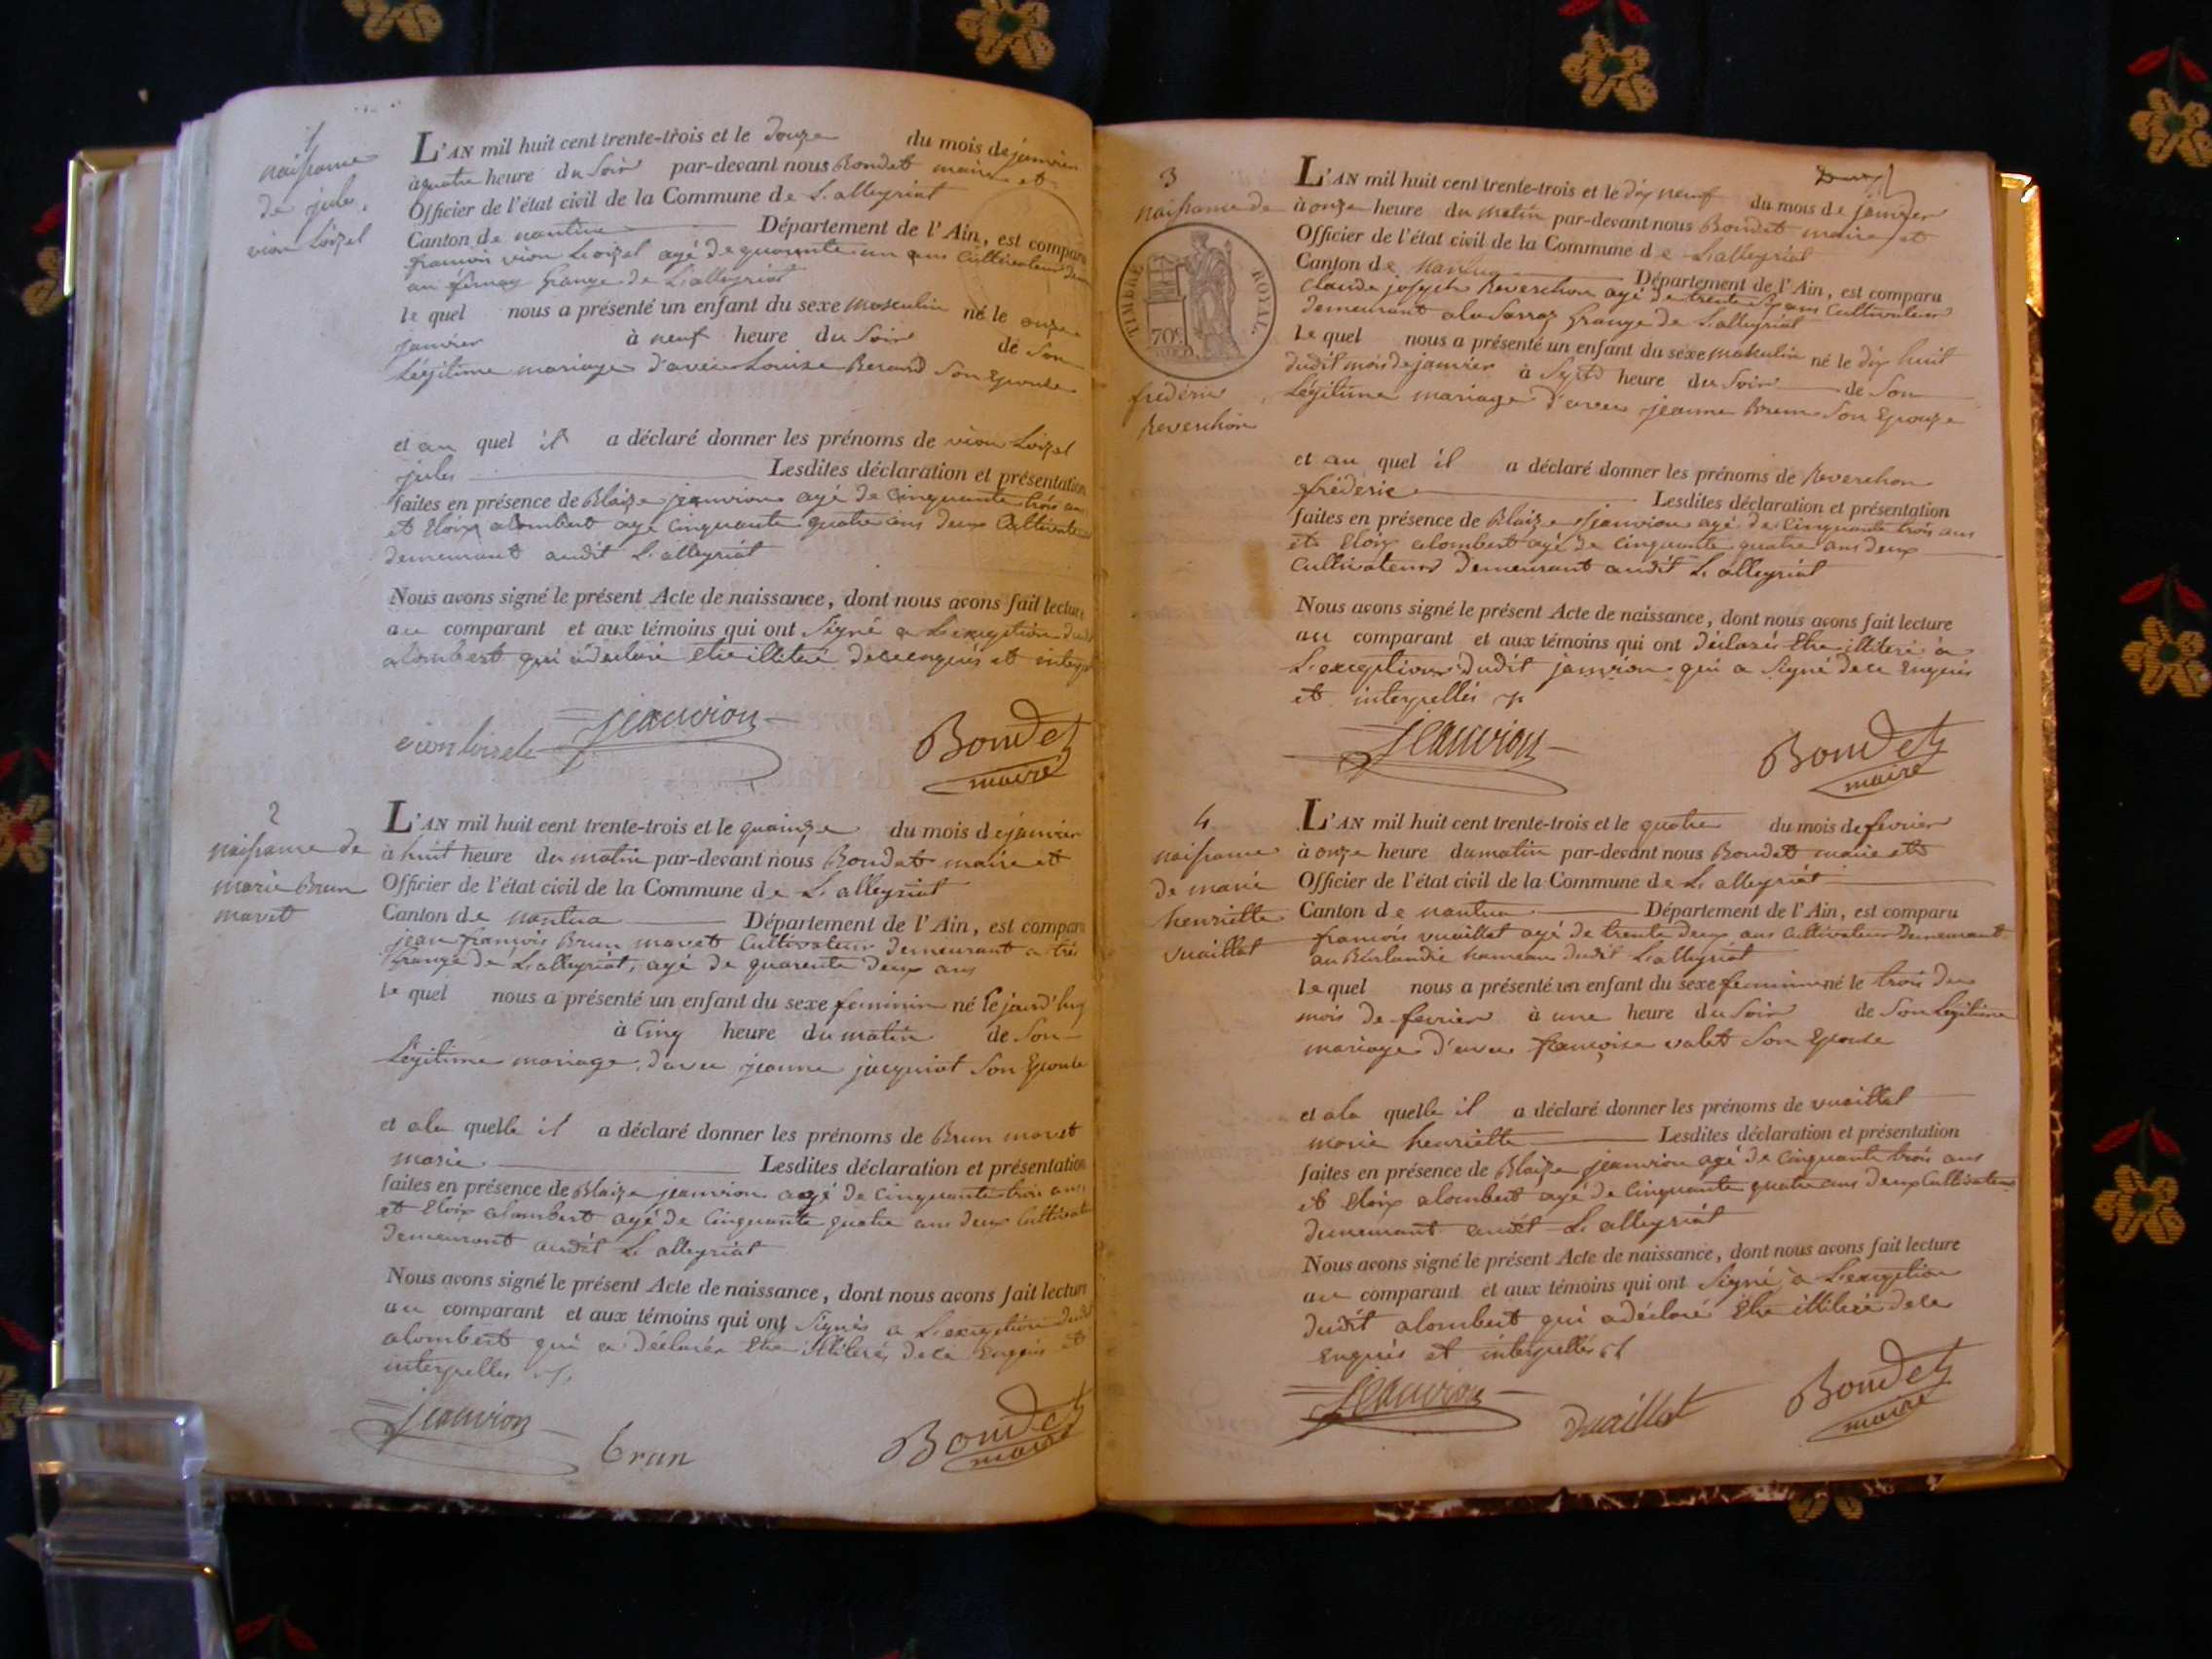 1
naissance
de jules
vion Loizel
L'AN mil huit cent trente-trois et le douze du mois de janvier
à quatre heure du Soir par-devant nous Bondet maire et
Officier de l'état civil de la Commune de L. alleyriat
Canton de nantua Département de l'Ain, est comparu
françois vion Loizel agé de quarante un ans Cultivateur
au grange de L. alleyriat
le quel nous a présenté un enfant du sexe masculin né le onze
janvier à neuf heure du Soir de Son
Légitime mariage d'avec Louise Berard Son Epouse
et au quel il a déclaré donner les prénoms de vion Loizel
jules Lesdites déclaration et présentation
faites en présence de Blaize jeanvion agé de cinquante trois ans
et Eloix alombert agé cinquante quatre ans deux Cultivateurs
demeurant audit L. alleyriat
Nous avons signé le présent Acte de naissance, dont nous avons fait lecture
au comparant et aux témoins qui ont Signé a L'exception dudit
alombert qui a déclaré etre illiteré de ce enquis et interpellé
vion loizel Jeanvion Bondet
maire
2
naissance de
marie Brun
mavet
L'AN mil huit cent trente-trois et le quainze du mois de janvier
à huit heure du matin par-devant nous Bondet maire et
Officier de l'état civil de la Commune de L. alleyriat
Canton de nantua Département de l'Ain, est comparu
jean françois Brun mavet Cultivateur demeurant a
grange de L. alleyriat, agé de quarente deux ans
le quel nous a présenté un enfant du sexe feminin né le jourd'huy
à Cinq heure du matin de Son
Légitime mariage d'avec jeanne jacquiot Son Epouse
et a la quelle il a déclaré donner les prénoms de Brun mavet
marie Lesdites déclaration et présentation
faites en présence de Blaize jeanvion agé de cinquante trois ans
et Eloix alombert agé de Cinquante quatre ans deux Cultivateurs
demeurant audit L. alleyriat
Nous avons signé le présent Acte de naissance, dont nous avons fait lecture
au comparant et aux témoins qui ont Signés a L'exception dudit
alombert qui a déclaré Etre illiteré de ce Enquis et
interpellés
Jeanvion brun Bondet
maire
3
naissance de
TIMBRE ROYAL
70c
fréderic
Reverchon
L'AN mil huit cent trente-trois et le dix neuf du mois de janvier
à onze heure du matin par-devant nous Bondet maire et
Officier de l'état civil de la Commune de L. alleyriat
Canton de nantua Département de l'Ain, est comparu
Claude joseph Reverchon agé de trente six ans Cultivateur
demeurant a la Sarraz grange de L. alleyriat
le quel nous a présenté un enfant du sexe maskulin né le dix huit
dudit mois de janvier à Sept heure du Soir de Son
Légitime mariage d'avec jeanne Brun Son Epouze
et au quel il a déclaré donner les prénoms de Reverchon
fréderic Lesdites déclaration et présentation
faites en présence de Blaize jeanvion agé de cinquante trois ans
et Eloix alombert agé de cinquante quatre ans deux
Cultivateurs demeurant audit L. alleyriat
Nous avons signé le présent Acte de naissance, dont nous avons fait lecture
au comparant et aux témoins qui ont déclarés Etre illiteré à
L'exception dudit jeanvion qui a Signé de ce Enquis
et interpellés
Jeanvion Bondet
maire
4
naissance
de marie
henriette
vuaillat
L'AN mil huit cent trente-trois et le quatre du mois de fevrier
à onze heure du matin par-devant nous Bondet maire et
Officier de l'état civil de la Commune de L. alleyriat
Canton de nantua Département de l'Ain, est comparu
françois vuaillat agé de trente deux ans Cultivateur demeurant
au Burlandié hameau dudit L. alleyriat
le quel nous a présenté un enfant du sexe feminin né le trois du
mois de fevrier à une heure du Soir de Son Légitime
mariage d'avec françoise valet Son Epouse
et a la quelle il a déclaré donner les prénoms de vuaillat
marie henriette Lesdites déclaration et présentation
faites en présence de Blaize jeanvion agé de cinquante trois ans
et Eloix alombert agé de Cinquante quatre ans deux Cultivateurs
demeurant audit L. alleyriat
Nous avons signé le présent Acte de naissance, dont nous avons fait lecture
au comparant et aux témoins qui ont Signé à L'exception
dudit alombert qui a déclaré Etre illiteré de ce
Enquis et interpellés
Jeanvion Vuaillat Bondet
maire